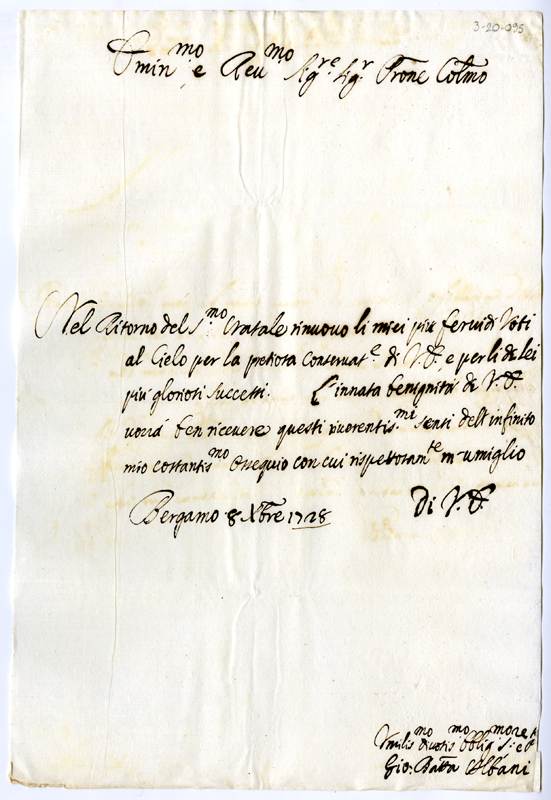 3-20-095
Emin.mo e Reu.mo Sig.re Sig.r Prone Colmo
Nel Ritorno del S.mo Natale rinuovo li miei piu feruidi Voti
al Cielo per la pretiosa Conseruat.e di V.E. e per li di lei
piu gloriosi successi. L'innata benignità di V.E.
vorrà ben riceuere questi riuerentis.mi sensi dell'infinito
mio costantis.mo ossequio con cui rispettosam.te m'umiglio
Di V.E.
Bergamo 8 Xbre 1728
Vmilis.mo Diuotis.mo Obblig.mo
Gio: Batta Albani